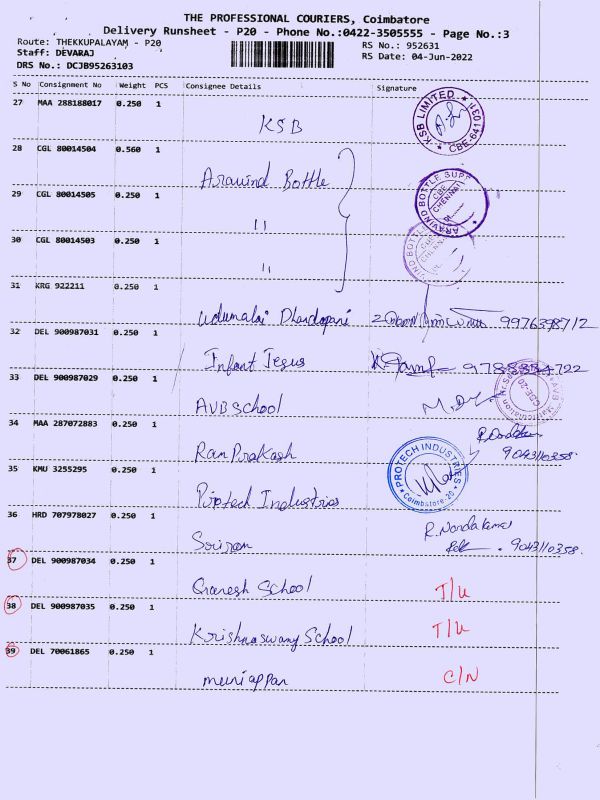 THE PROFESSIONAL COURIERS, Coimbatore
Delivery Runsheet - P20 - Phone No.:0422-3505555 - Page No.:3
Route: THEKKUPALAYAM - P20
RS No.: 952631
Staff: DEVARAJ
RS Date: 04-Jun-2022
DRS No.: DCJB95263103
S No Consignment No Weight PCS Consignee Details Signature
27 MAA 288188017 0.250 1
KSB
KSB LIMITED
28 CGL 80014504 0.560 1
Aravind Bottle
29 CGL 80014505 0.250 1
"
ARAVIND BOTTLE SUPP
CBE
CHENNAI
30 CGL 80014503 0.250 1
"
31 KRG 922211 0.250 1
Udumalai Dhandapani 9976398712
32 DEL 900987031 0.250 1
Infant Jesus
33 DEL 900987029 0.250 1
AVB School
34 MAA 287072883 0.250 1
Ram Prakash 9043110358
35 KMU 3255295 0.250 1
Protech Industries
PROTECH INDUSTRIES
Coimbatore-20
36 HRD 707978027 0.250 1
Sriram
R. Nandakumar
9043110358
37 DEL 900987034 0.250 1
Ganesh School T/U
38 DEL 900987035 0.250 1
Krishnaswamy School T/U
39 DEL 70061865 0.250 1
muniappan C/N